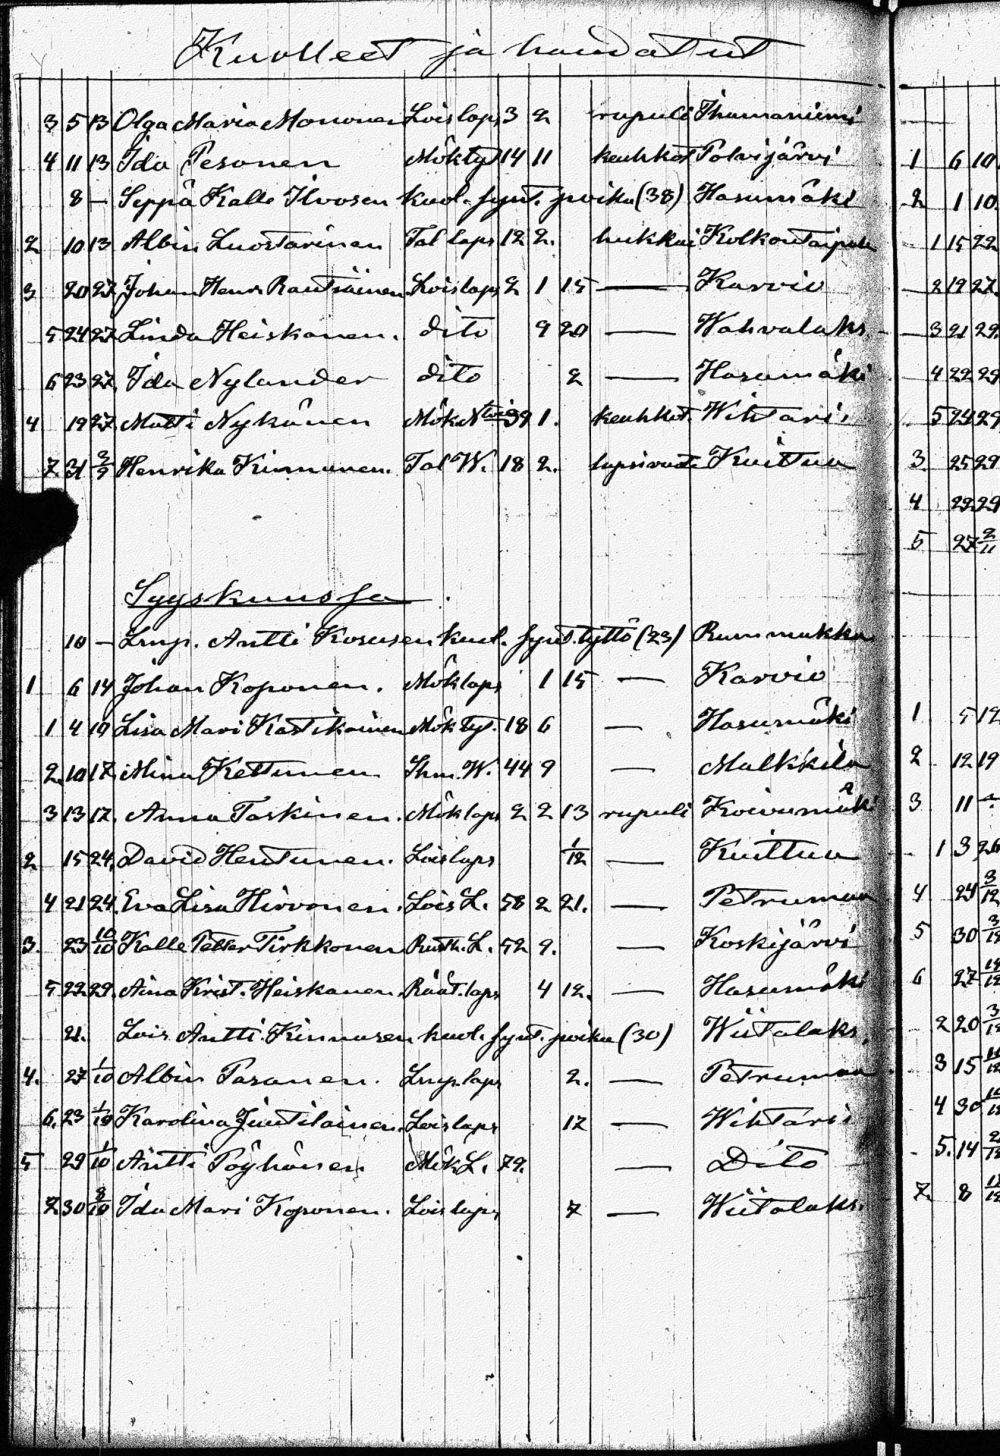 Kuolleet ja haudatut
3 5 13 Olga Maria Mononen Loislaps 3 2 rupuli Ihamaniemi
4 11 13 Ida Pesonen Mök tyt 14 11 keuhkot Polvijärvi
8 — Seppä Kalle Ilvosen kuol. synt. poika (38) Hasumäki
2 10 13 Albin Luostarinen Tal laps 12 2. Kolkontaipale
3 20 27 Johan Henr Rautiainen Loislaps 2 1 15 — Karvio
5 24 27 Linda Heiskanen. dito 9 20 — Wahvalaks.
6 23 27 Ida Nylander dito 2 — Hasumäki
4 19 27 Matti Nykänen Mök 39 1. keuhkot. Wihtari
7 31 3/9 Henrika Kinnunen. Tal W. 18 2. Kuittua
Syyskuussa
10 — Lmp. Antti Kososen kuol. synt. tyttö (23) Rummukka
1 6 14 Johan Koponen. Möklaps 1 15 — Karvio
1 4 19 Lisa Mari Kastikainen Mök tyt. 18 6 — Hasumäki
2. 10 17 Mina Kettunen Ihm. W. 44 9 — Malkkila
3 13 17. Anna Taskinen. Mök laps 2 2 13 rupuli Koivumäki
2 15 24 David Hentunen. Loislaps 1/12 — Kuittua
4 21 24 Eva Lisa Hirvonen. Lois L. 58 2 21. — Petrumaa
3. 23 10/10 Kalle Petter Tirkkonen Ruoth. L. 52 9. — Koskijärvi
5 22 29. Aina Krist. Heiskanen. Räät. laps 4 12. — Hasumäki
21. Lois Antti Kinnusen kuol. synt. poika (30) Wiitalaks.
4. 27 1/10 Albin Pasanen. Lmp. laps 2. — Petrumaa
6. 23 1/10 Karolina Juntilainen. Loislaps 17 — Wihtari
5 29 1/10 Antti Pöyhönen Mök L. 79. — Dito
7 30 8/10 Ida Mari Koponen. Loislaps 7 — Wiitalaks.
1 6 10.
2 1 10.
1 15 22
2 19 27
3 21 29
4 22 29
5 24 29
3 25 29
4 22 29
5 27 2/11
1 5 12
2 12 19
3 11 —
1 3 26
4 24 3/12
5 30
6 27
2 20
3 15
4 30
5. 14
7 8